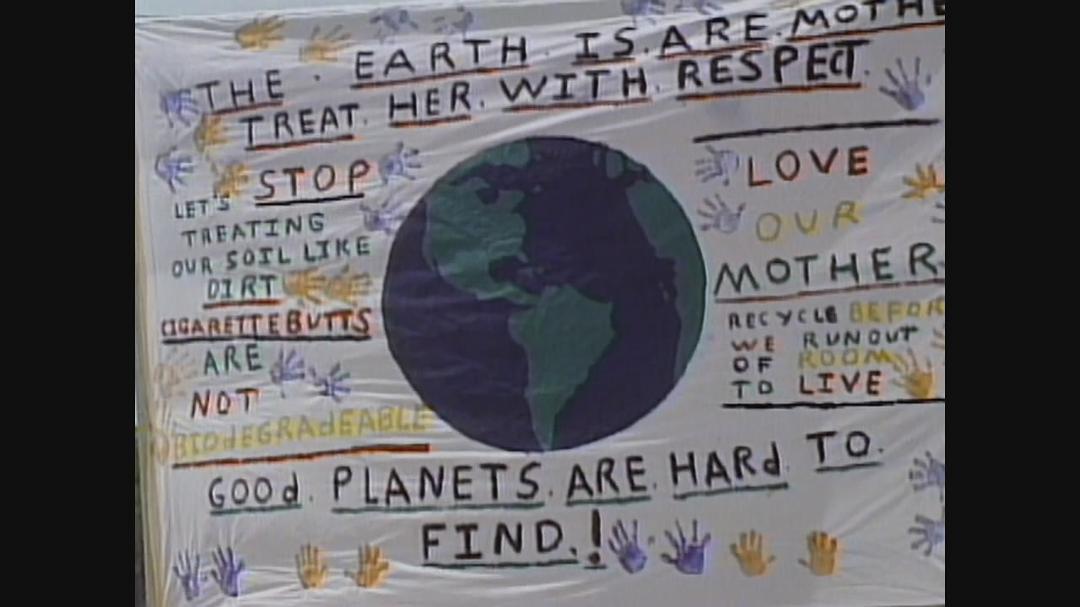 THE. EARTH. IS. ARE. MOTHE
TREAT. HER. WITH. RESPECT.
LET'S STOP
TREATING
OUR SOIL LIKE
DIRT
CIGARETTE BUTTS
ARE
NOT
BIOdEGRAdEABLE
LOVE
OUR
MOTHER
RECYCLE BEFOR
WE RUNOUT
OF ROOM
TO LIVE
GOOd. PLANETS. ARE. HARd. TO.
FIND.!